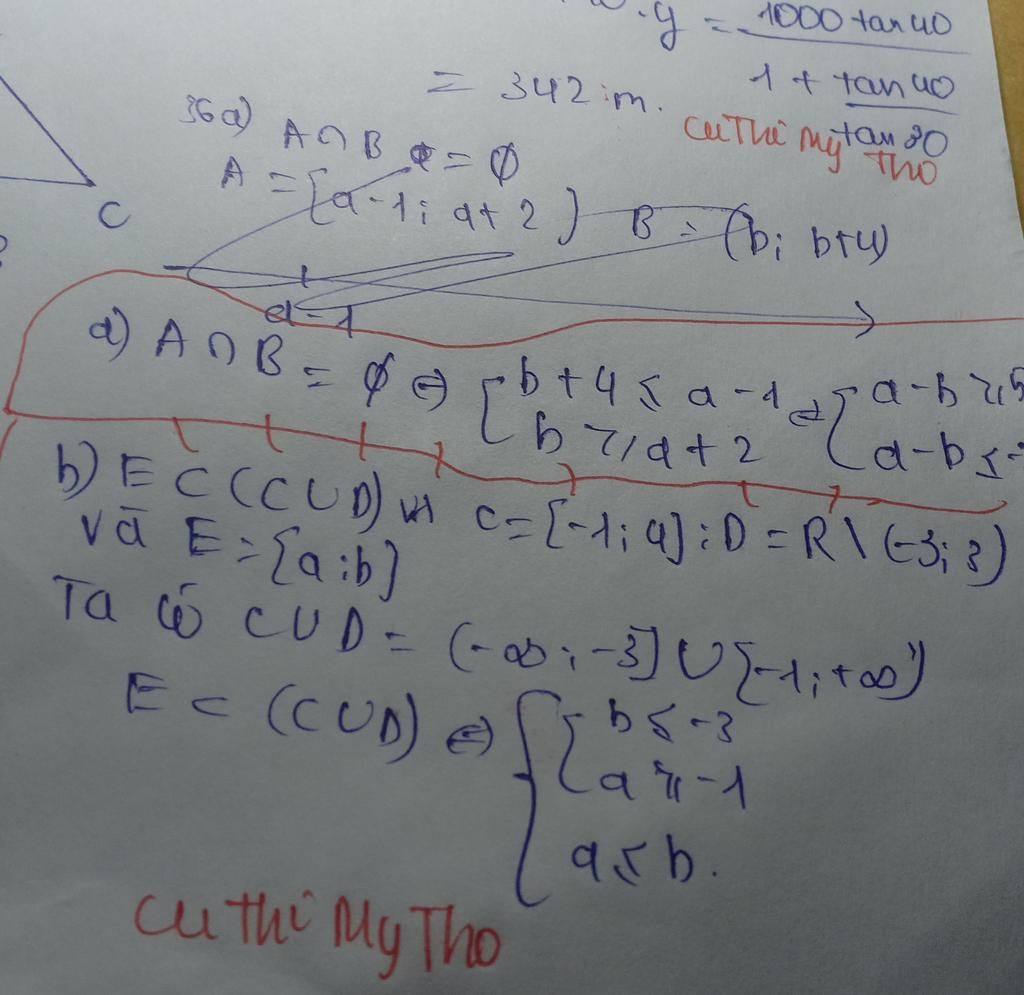 y = 1000 tan 40
1 + tan 40
tan 30
= 342 m.
Cu Thi My Tho
C
36a) A ∩ B = ∅
A = [a-1; a+2) B = (b; b+4)
a-1
a) A ∩ B = ∅ ⇔ [ b + 4 ≤ a - 1 ⇔ [ a - b ≥ 5
b ≥ a + 2 a - b ≤ -
b) E ⊂ (C ∪ D) với C = [-1; a]; D = R \ (-3; 3)
và E = [a; b]
Ta có C ∪ D = (-∞; -3] ∪ [-1; +∞)
E ⊂ (C ∪ D) ⇔ { [ b ≤ -3
a ≥ -1
a ≤ b.
Cu Thi My Tho